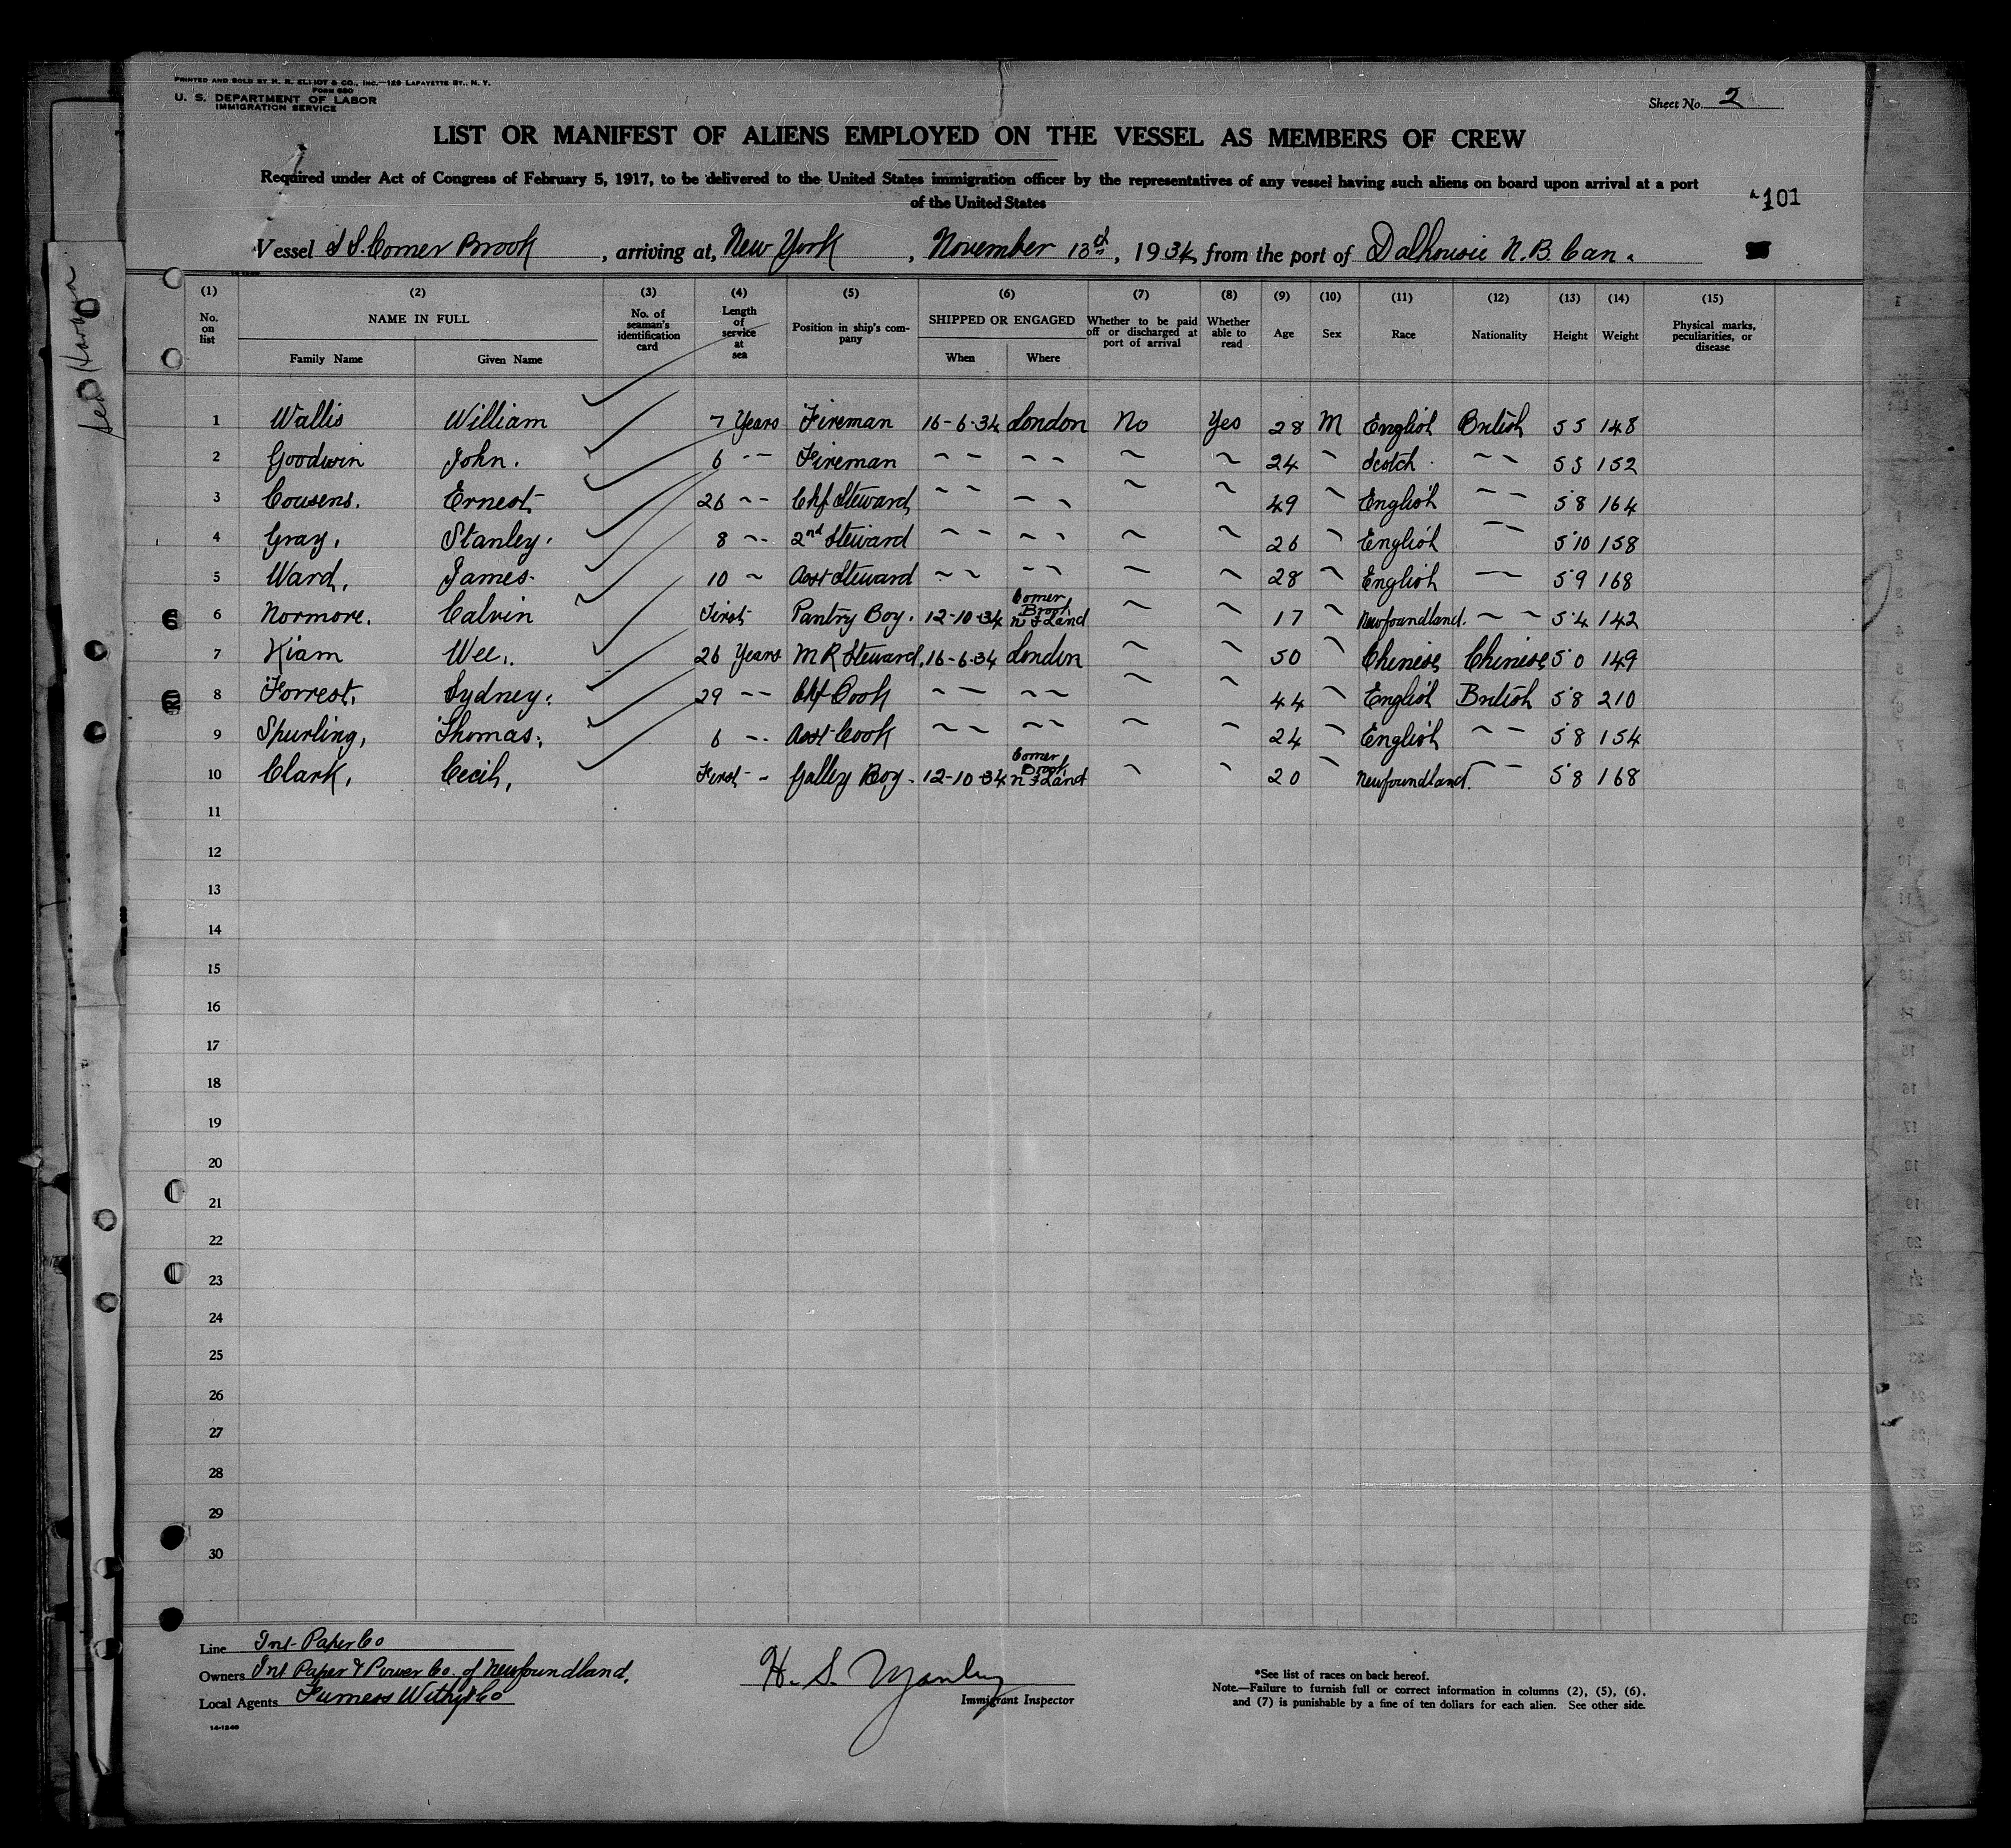 PRINTED AND SOLD BY H. R. ELLIOT & CO., INC.—129 LAFAYETTE ST., N. Y.
FORM 680
U. S. DEPARTMENT OF LABOR
IMMIGRATION SERVICE
Sheet No. 2
LIST OR MANIFEST OF ALIENS EMPLOYED ON THE VESSEL AS MEMBERS OF CREW
Required under Act of Congress of February 5, 1917, to be delivered to the United States immigration officer by the representatives of any vessel having such aliens on board upon arrival at a port
of the United States
101
Vessel S.S. Corner Brook, arriving at, New York, November 13th, 1934, from the port of Dalhousie N.B. Can.
(1) (2) (3) (4) (5) (6) (7) (8) (9) (10) (11) (12) (13) (14) (15)
No. on list NAME IN FULL Family Name Given Name No. of seaman's identification card Length of service at sea Position in ship's company SHIPPED OR ENGAGED When Where Whether to be paid off or discharged at port of arrival Whether able to read Age Sex Race Nationality Height Weight Physical marks, peculiarities, or disease
1 Wallis William 7 Years Fireman 16-6-34 London No Yes 28 M English British 5 5 148
2 Goodwin John. 6 -- Fireman ~ ~ ~ ~ ~ ~ 24 ~ Scotch. ~ ~ 5 5 152
3 Cousens. Ernest 26 -- Chf Steward ~ ~ ~ ~ ~ ~ 49 ~ English ~ ~ 5 8 164
4 Gray, Stanley. 8 -- 2nd Steward ~ ~ ~ ~ ~ ~ 26 ~ English ~ ~ 5'10 158
5 Ward, James. 10 ~ Asst Steward ~ ~ ~ ~ ~ ~ 28 ~ English ~ ~ 5'9 168
6 Normore. Calvin First Pantry Boy. 12-10-34 Corner Brook N F Land ~ ~ 17 ~ Newfoundland. ~ ~ 5'4 142
7 Kiam Wee. 26 Years M R Steward, 16-6-34 London ~ ~ 50 ~ Chinese Chinese 5'0 149
8 Forrest, Sydney. 29 -- Chf Cook ~ ~ ~ ~ ~ ~ 44 ~ English British 5'8 210
9 Spurling, Thomas. 6 -- Asst Cook ~ ~ ~ ~ ~ ~ 24 ~ English ~ ~ 5'8 154
10 Clark, Cecil, First - Galley Boy. 12-10-34 Corner Brook N F Land ~ ~ 20 ~ Newfoundland. ~ ~ 5'8 168
11
12
13
14
15
16
17
18
19
20
21
22
23
24
25
26
27
28
29
30
Line Int Paper Co
Owners Int Paper & Power Co. of Newfoundland.
Local Agents Furness Withy & Co
14-1240
Immigrant Inspector
*See list of races on back hereof.
Note.—Failure to furnish full or correct information in columns (2), (5), (6),
and (7) is punishable by a fine of ten dollars for each alien. See other side.